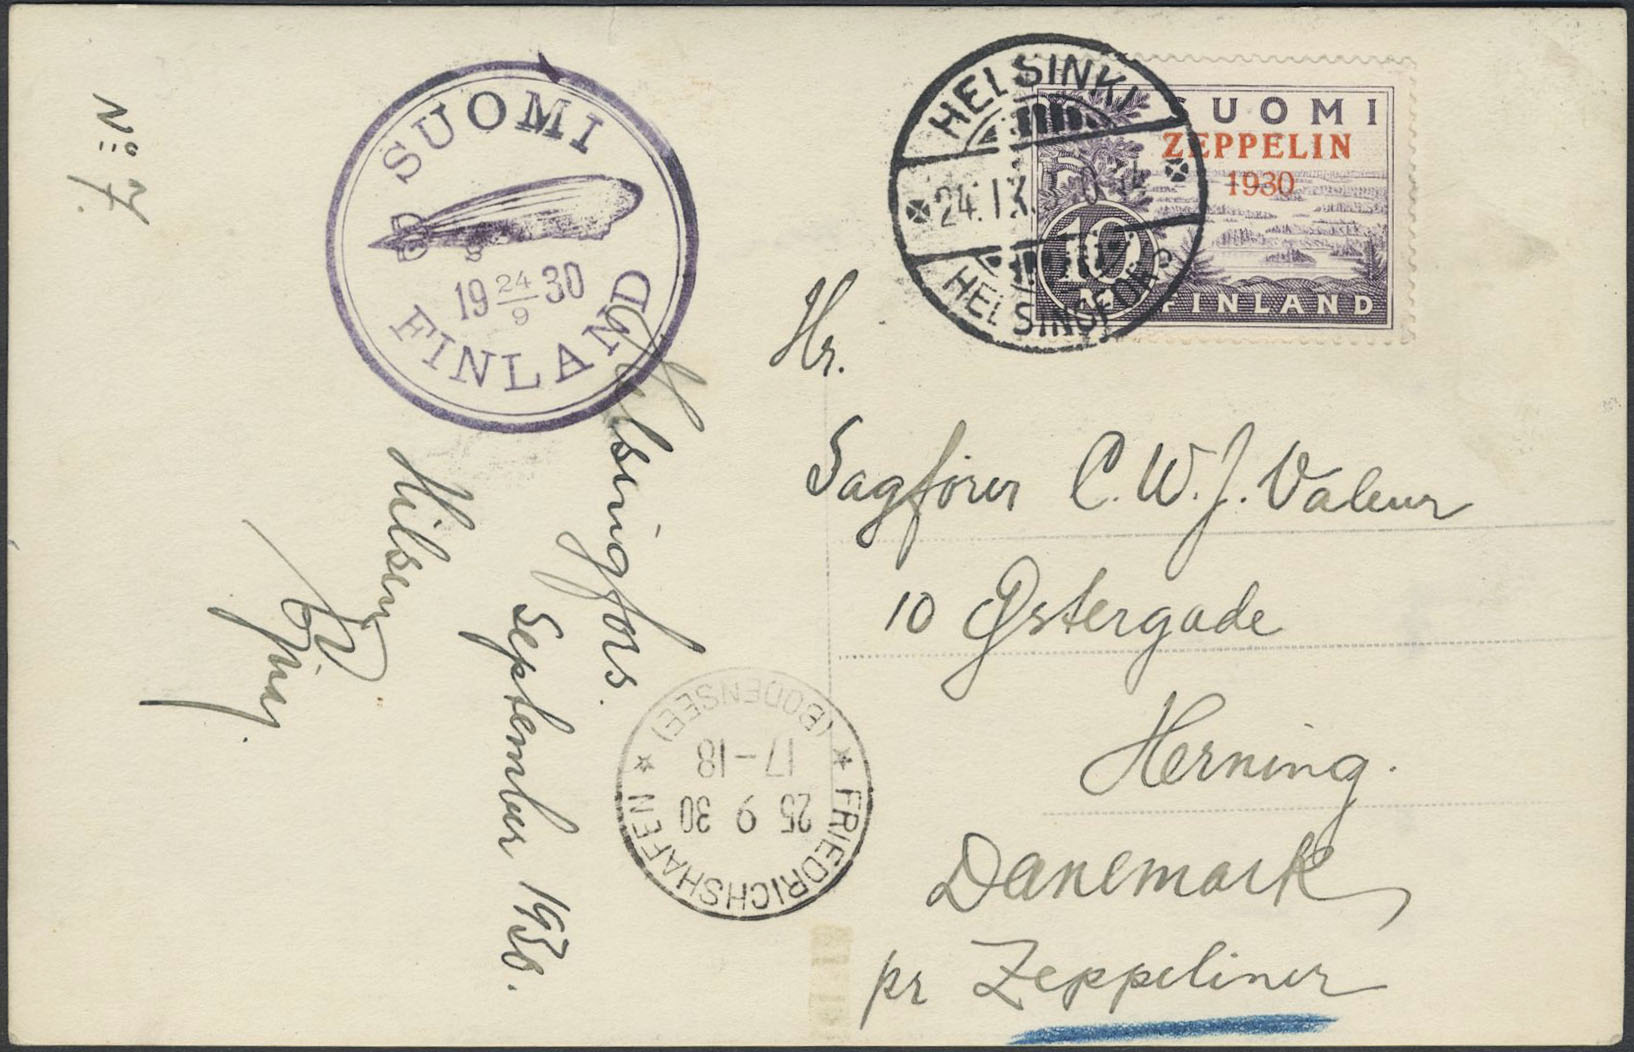 No: 7.
SUOMI
19 24/9 30
FINLAND
Helsingfors.
September 1930.
Hilsen
HELSINKI
24.IX.
HELSINGFORS
SUOMI
ZEPPELIN
1930
10
FINLAND
Hr.
Sagfører C. W. J. Valeur
10 Østergade
Herning.
Danemark
pr Zeppeliner
FRIEDRICHSHAFEN
25 9 30
17-18
(BODENSEE)